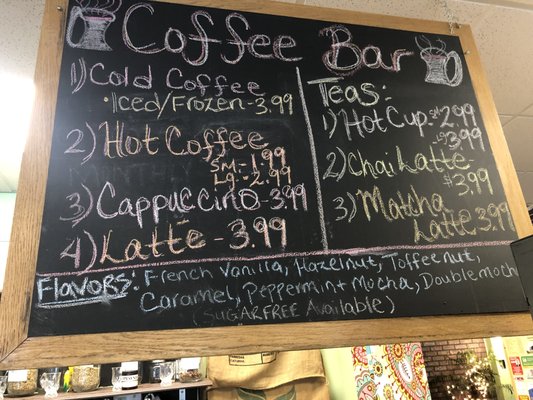 Coffee Bar
1) Cold Coffee
• Iced/Frozen - 3.99
2) Hot Coffee
Sm = 1.99
Lg = 2.99
3) Cappuccino - 3.99
4) Latte - 3.99
Teas:
1) Hot Cup
2.99
3.99
2) Chai Latte
$3.99
3) Matcha
Latte 3.99
Flavors: French Vanilla, Hazelnut, Toffeenut,
Caramel, Peppermint Mocha, Double moch
(SUGARFREE Available)